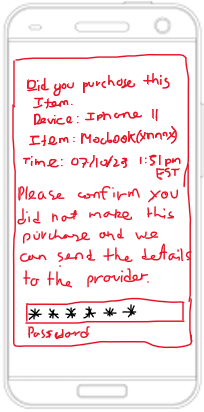 Did you purchase this
Item.
Device: Iphone 11
Item: Macbook(xnnnx)
Time: 07/10/23 1:51pm
EST
Please confirm you
did not make this
purchase and we
can send the details
to the provider.
******
Password